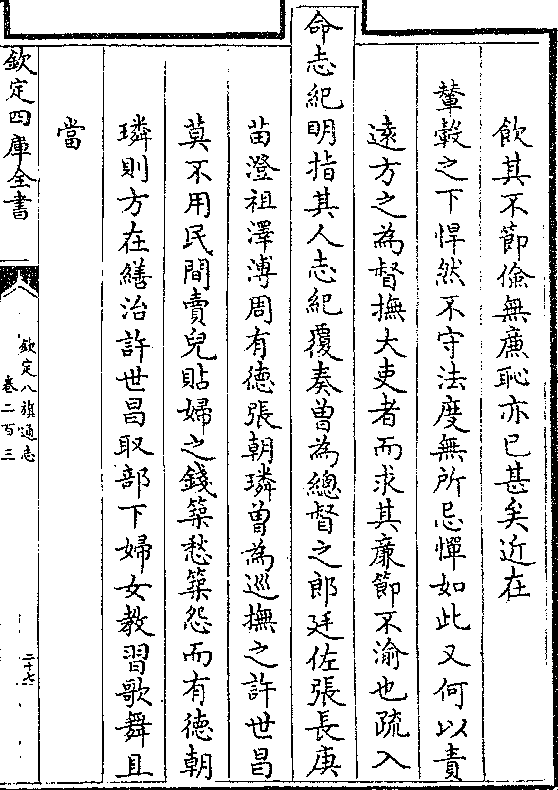 飲其不節儉無廉恥亦已甚矣近在
輦轂之下悍然不守法度無所忌憚如此又何以責
遠方之為督撫大吏者而求其廉節不渝也疏入
命志紀明指其人志紀覆奏曽為總督之郎廷佐張長庚
苗澄祖澤溥周有德張朝璘曽為巡撫之許世昌
莫不用民間賣兒貼婦之錢築愁築怨而有德朝
璘則方在繕治許世昌取部下婦女教習歌舞且
當
欽定四庫全書
欽定八旗通志
卷二百三
二十七